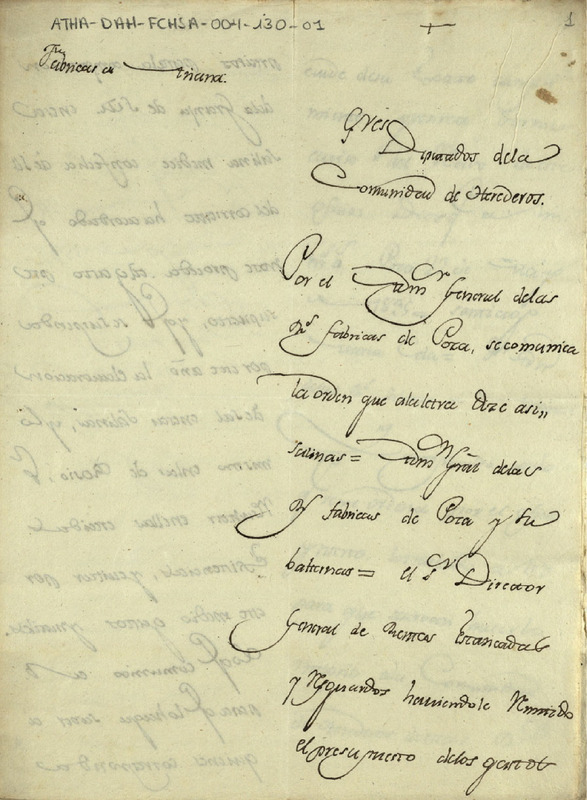 ATHA-DAH-FCHSA-004-130-01
1
Fabricas de Añana.
Sres
Diputados dela
Comunidad de Herederos.
Por el Admor General delas
Rs fabricas de Poza, se comunica
la orden que alaletra dize asi,,
salinas = Admor Gral delas
Rs fabricas de Poza y su
baticinas = el Sr Director
General de Rentas Estancadas
y Resguardos haviendole Remitido
el presupuesto delos gastos